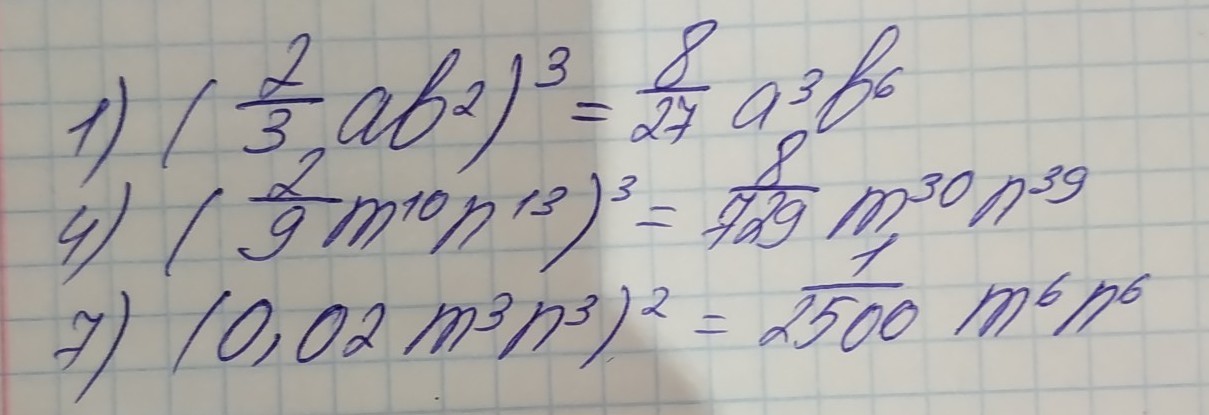 1) (2/3 ab²)³ = 8/27 a³b⁶
4) (2/9 m¹⁰n¹³)³ = 8/729 m³⁰n³⁹
7) (0,02 m³n³)² = 1/2500 m⁶n⁶